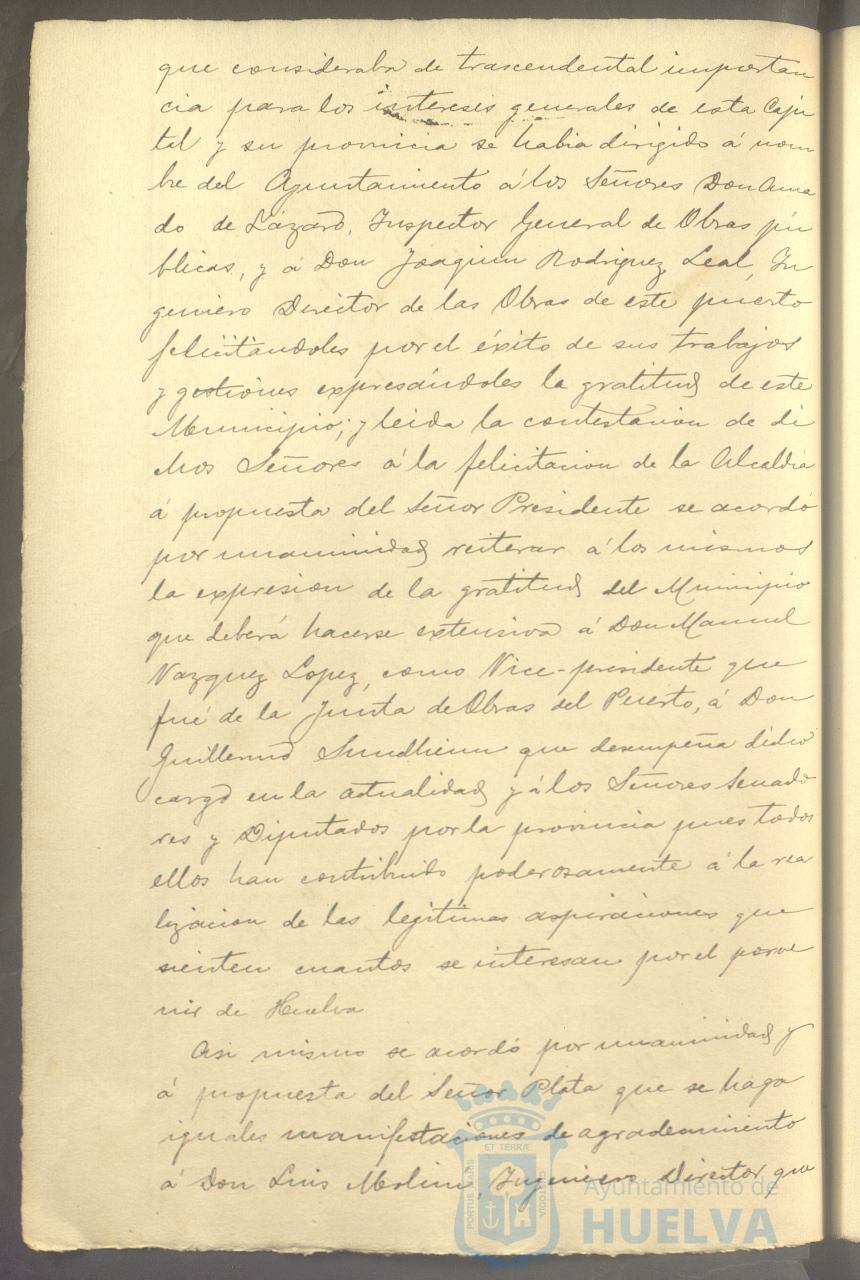 que consideraba de trascendental importan
cia para los intereses generales de esta Capi
tal y su provincia se habia dirigido á nom
bre del Ayuntamiento á los Señores Don Ama
do de Lázaro, Inspector General de Obras pú
blicas, y á Don Joaquin Rodriguez Leal, In
geniero Director de las Obras de este puerto
felicitandoles por el éxito de sus trabajos
y gestiones expresándoles la gratitud de este
Municipio; y leida la contestacion de di
chos Señores á la felicitacion de la Alcaldia
á propuesta del Señor Presidente se acordó
por unanimidad reiterar á los mismos
la expresion de la gratitud del Municipio
que deberá hacerse extensiva á Don Manuel
Vazquez Lopez, como Vice-presidente que
fué de la Junta de Obras del Puerto, á Don
Guillermo Sundheim que desempeña dicho
cargo en la actualidad y á los Señores Senado
res y Diputados por la provincia pues todos
ellos han contribuido poderosamente á la rea
lizacion de las legitimas aspiraciones que
sienten cuantos se interesan por el porve
nir de Huelva
Asi mismo se acordó por unanimidad y
á propuesta del Señor Plata que se haga
iguales manifestaciones de agradecimiento
á Don Luis Molini, Ingeniero Director, que
PORTUS MARIS
ET TERRÆ
CUSTODIA
Ayuntamiento de
HUELVA